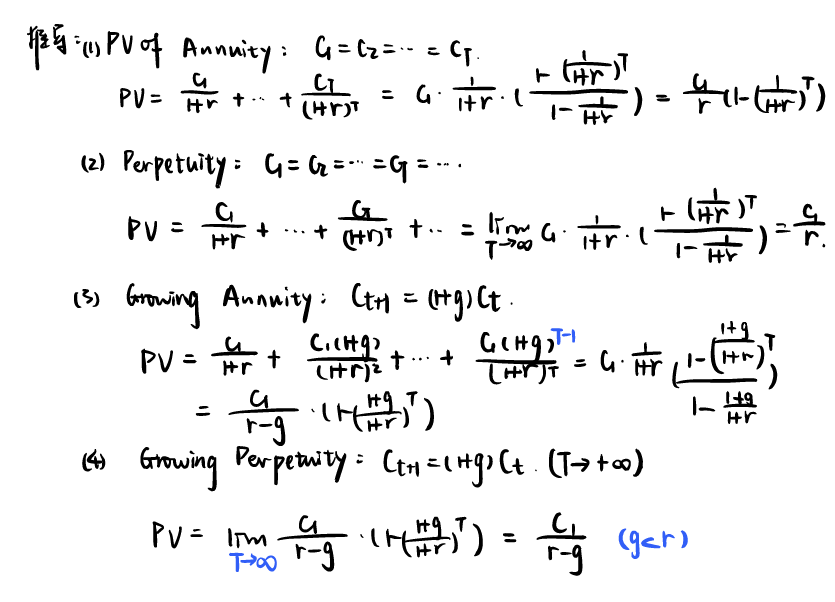 推导:(1) PV of Annuity: C₁=C₂=⋯=C_T.
PV = C₁/(1+r) + ⋯ + C_T/(1+r)^T = C₁ · 1/(1+r) · ((1-(1/(1+r))^T)/(1-1/(1+r))) = C₁/r (1-(1/(1+r))^T)
(2) Perpetuity: C₁=C₂=⋯=C_T=⋯.
PV = C₁/(1+r) + ⋯ + C_T/(1+r)^T + ⋯ = lim T→∞ C₁ · 1/(1+r) · ((1-(1/(1+r))^T)/(1-1/(1+r))) = C₁/r.
(3) Growing Annuity: C_{t+1} = (1+g)C_t.
PV = C₁/(1+r) + C₁(1+g)/(1+r)² + ⋯ + C₁(1+g)^{T-1}/(1+r)^T = C₁ · 1/(1+r) ((1-((1+g)/(1+r))^T)/(1-(1+g)/(1+r)))
= C₁/(r-g) · (1-((1+g)/(1+r))^T)
(4) Growing Perpetuity: C_{t+1}=(1+g)C_t. (T→+∞)
PV = lim T→∞ C₁/(r-g) · (1-((1+g)/(1+r))^T) = C₁/(r-g) (g<r)